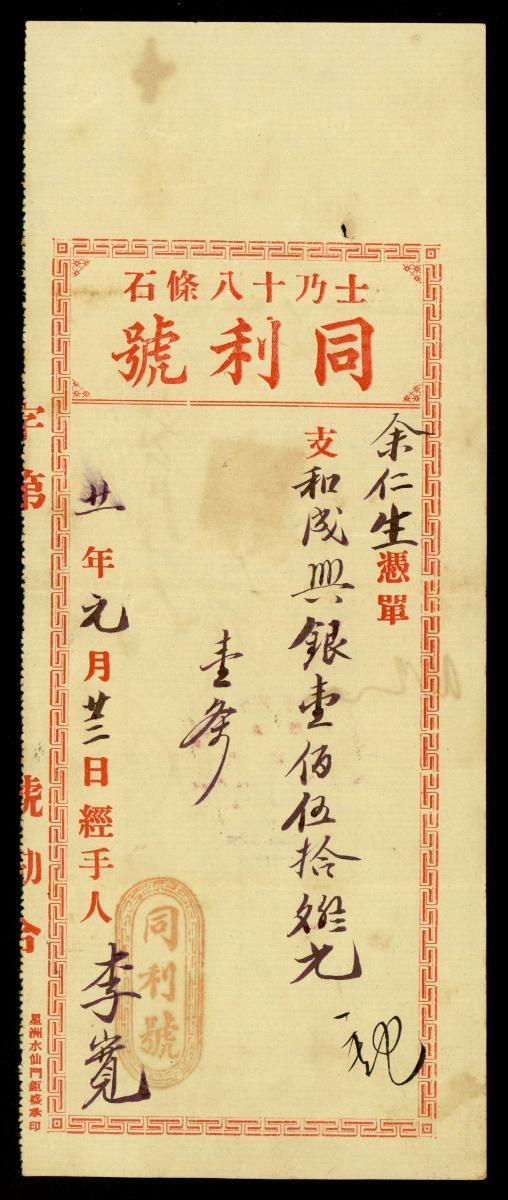 士乃十八條石
同利號
余仁生憑單
支和成興銀壹佰伍拾元
壹条
廿一年元月廿二日經手人李寬
同利號
字第 號勘合
星洲水仙門鉅盛承印